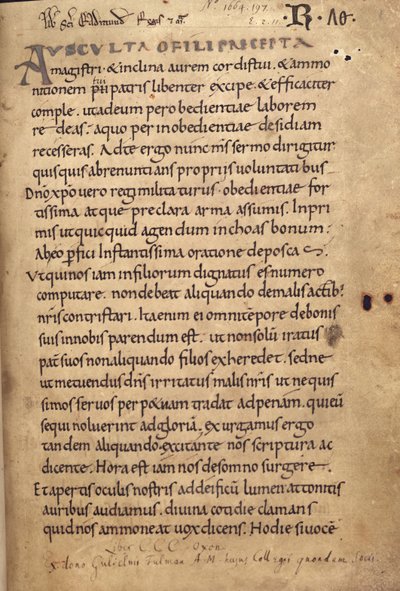 Nº 1664.197.
E. 2. 11.
R. ΛΘ.
AUSCULTA O FILI PRECEPTA
magistri · & inclina aurem cordis tui · & ammo
nitionem pii patris libenter excipe · & efficaciter
comple · ut ad eum per obedientiae laborem
redeas · a quo per inobedientiae desidiam
recesseras. Ad te ergo nunc m̅s sermo dirigitur
quisquis abrenuntians propriis voluntatibus
Dn̅o xp̅o vero regi militaturus · obedientiae for
tissima atque preclara arma assumis. In pri
mis ut quicquid agendum inchoas bonum :
Ab eo p̅fici Instantissima oratione deposcas.
Ut qui nos iam in filiorum dignatus est numero
computare · non debeat aliquando de malis actib;
nr̅is contristari. Ita enim ei omni tēpore de bonis
suis in nobis parendum est · ut non solū iratus
pat̅ suos non aliquando filios exheredet · sed ne
ut metuendus dn̅s irritatus malis nr̅is ut nequis
simos servos perp&uam tradat ad penam · qui eū
sequi noluerint ad gloriā. Exurgamus ergo
tandem aliquando excitante nos scriptura ac
dicente. Hora est iam nos de somno surgere.
Et apertis oculis nostris ad deificū lumen attonitis
auribus audiamus · divina cotidie clamans
quid nos ammoneat vox dicens. Hodie si vocē
Liber C.C.C. Oxon.
Ex dono Gulielmi Fulman A.M. hujus Collegii quondam Socii.